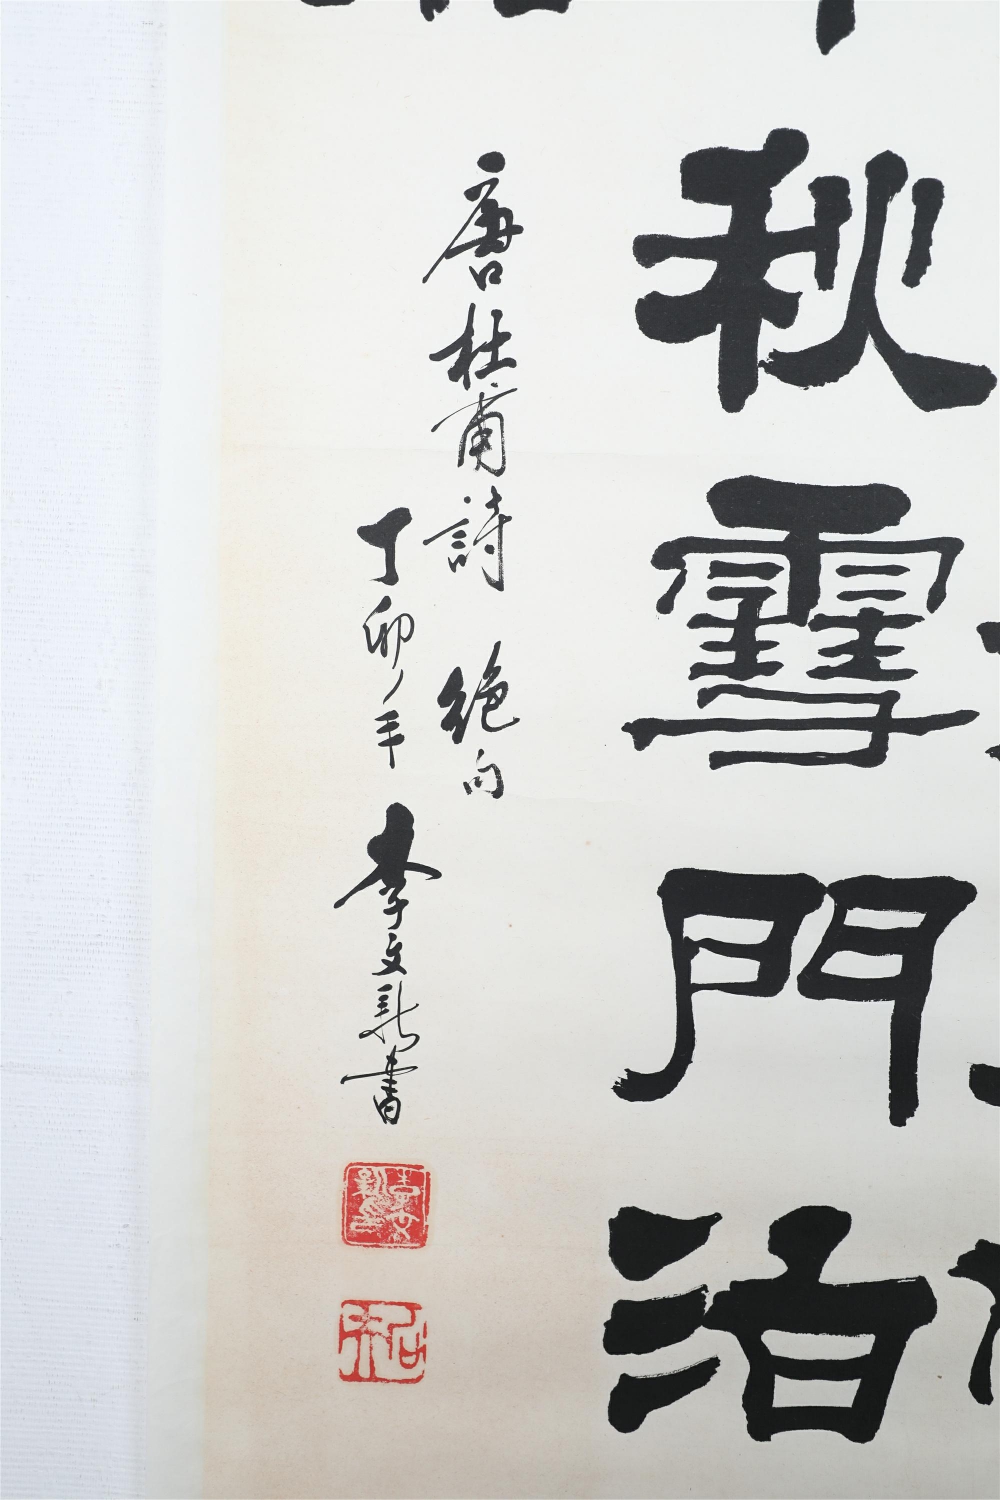 秋雪門泊
唐杜甫詩絕句
丁卯年李文新書